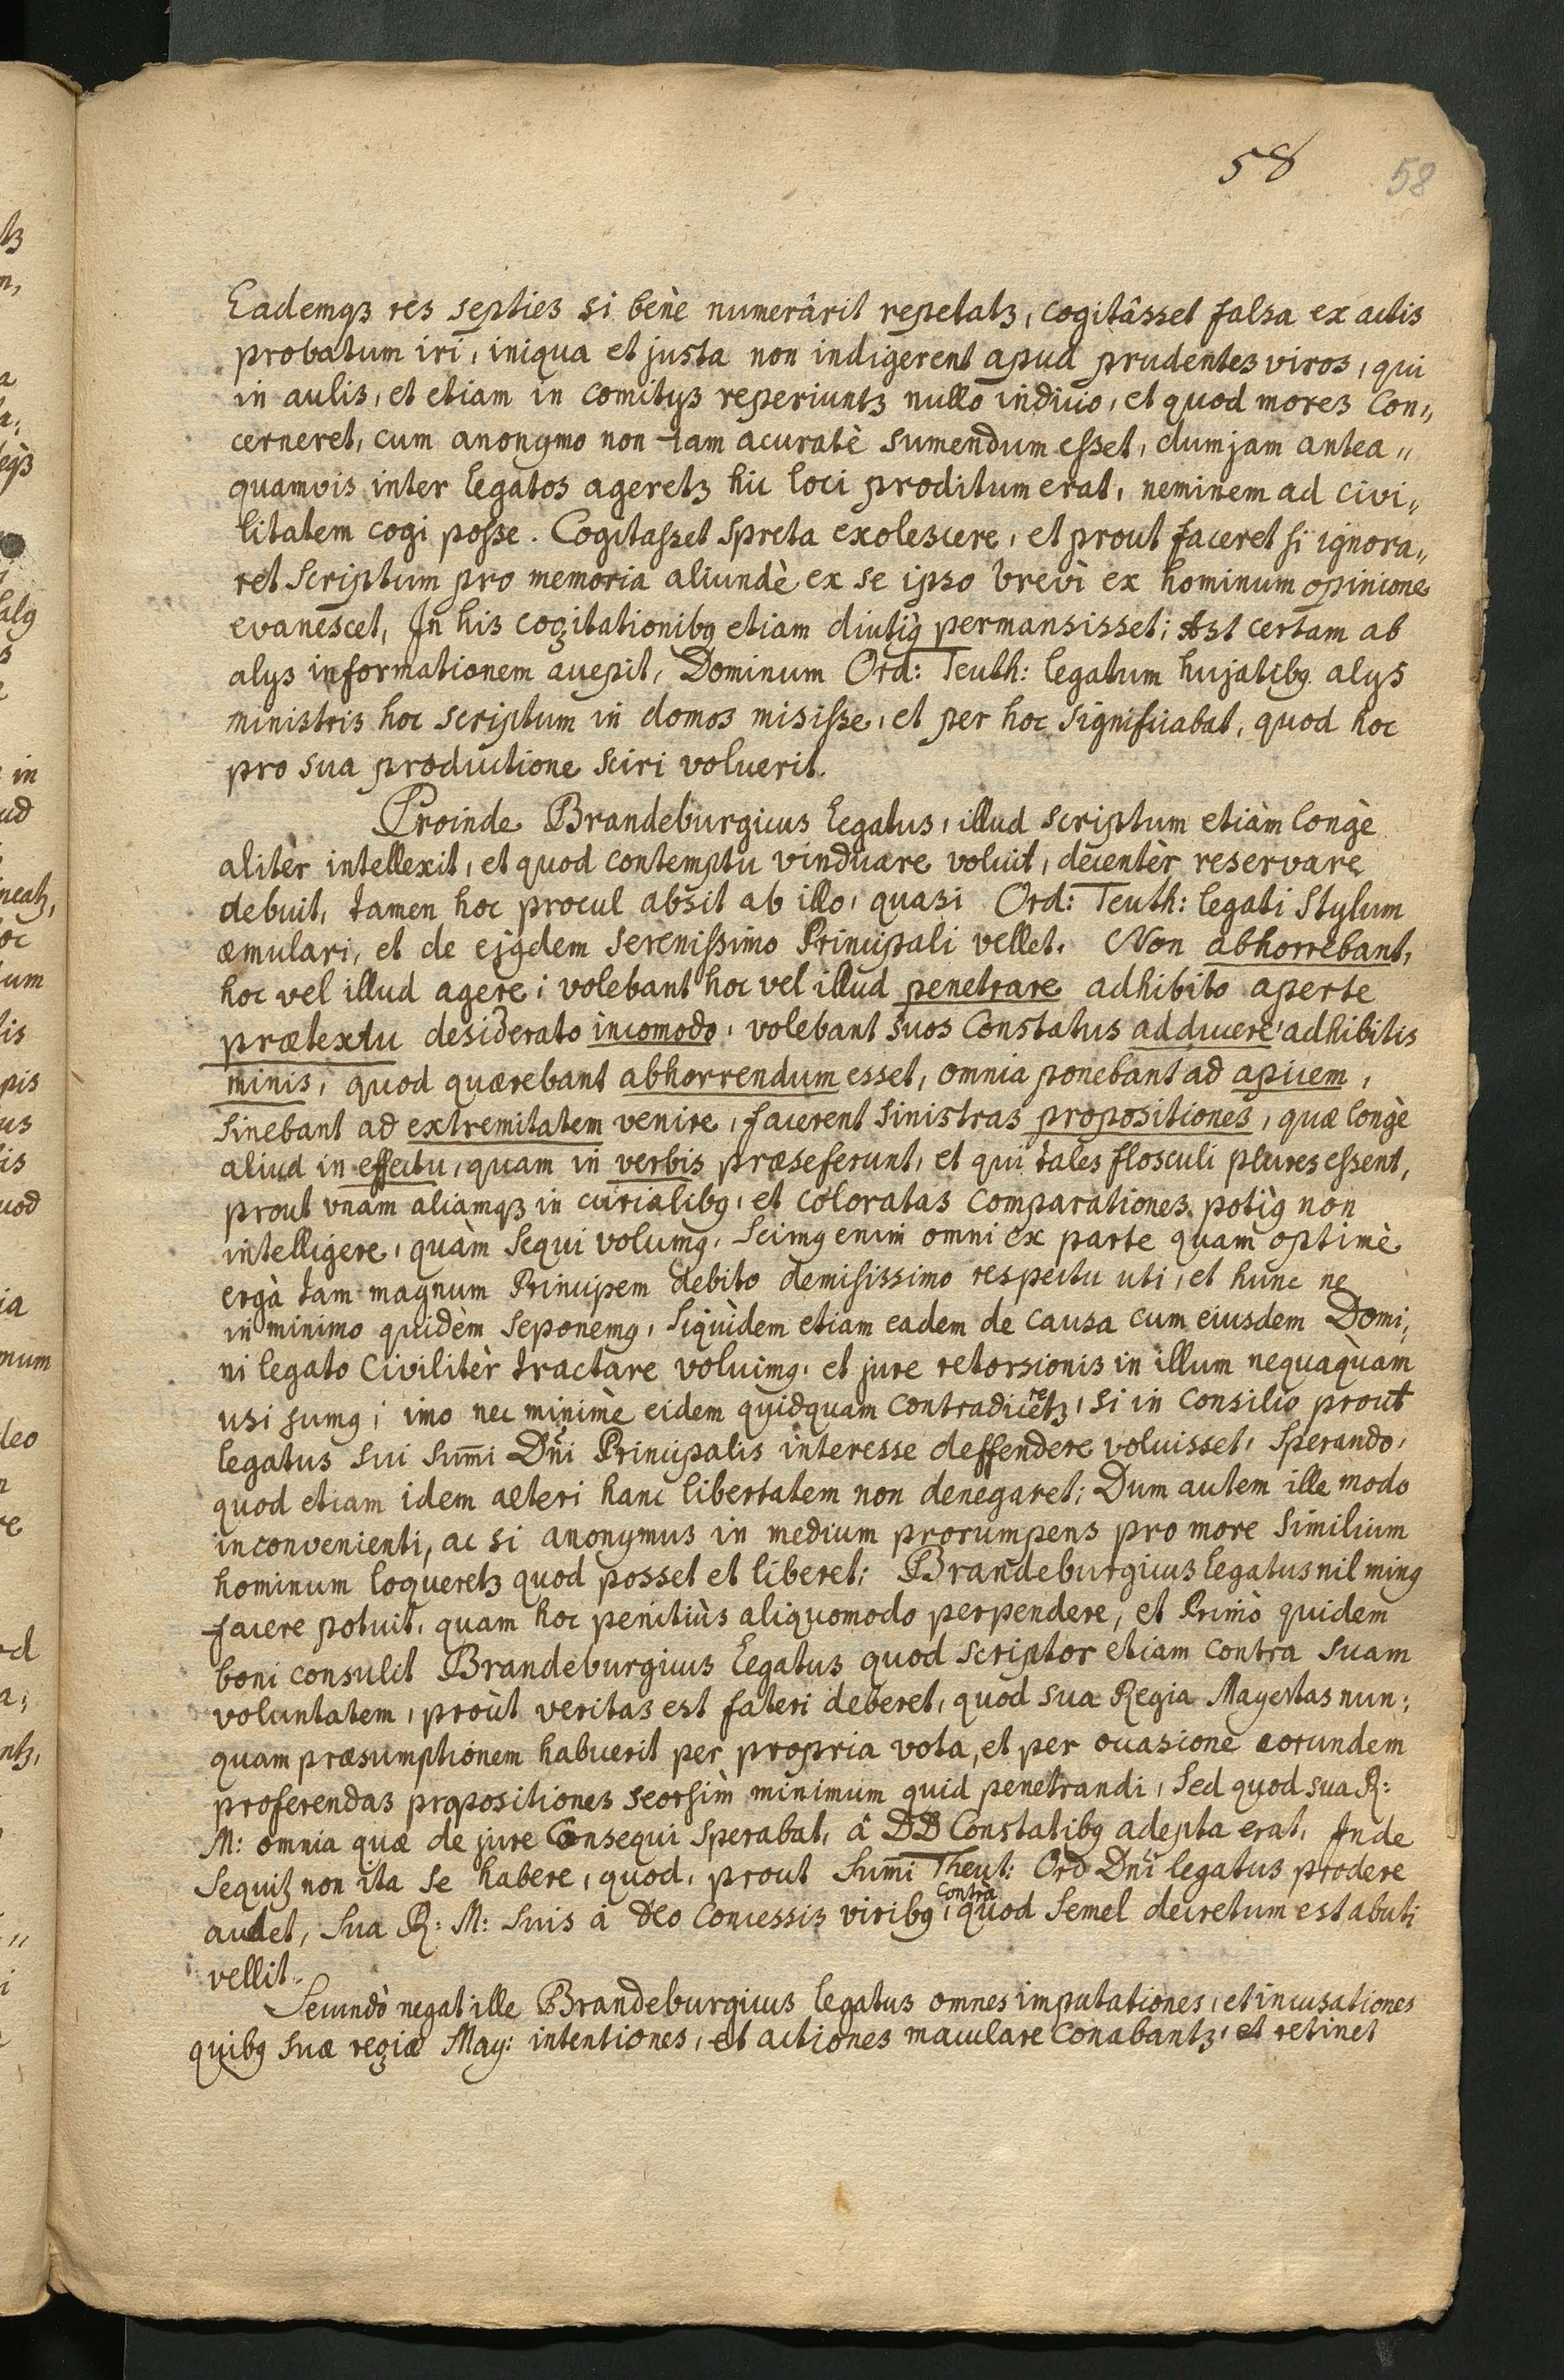 58 58
Eademqꝫ res septies si benè numerârit repetatꝫ, cogitâsset falsa ex actis
probatum iri, iniqua et justa non indigerent apud prudentes viros, qui
in aulis, et etiam in comitijs reperiuntꝫ nullo indicio, et quod mores con„
cerneret, cum anonymo non tam acuratè sumendum esset, dum jam antea„
quamvis inter legatos ageretꝫ hic loci proditum erat, neminem ad civi„
litatem cogi posse. Cogitasset spreta exolescere, et prout faceret si ignora„
ret scriptum pro memoria aliundè ex se ipso brevi ex hominum opinione
evanescet, In his cogitationibꝰ etiam diutiꝰ permansisset; Ast certam ab
alijs informationem accepit, Dominum Ord: Teuth: legatum hujatibꝰ alijs
ministris hoc scriptum in domos misisse, et per hoc significabat, quod hoc
pro sua productione sciri voluerit.
Proinde Brandeburgicus legatus, illud scriptum etiàm longè
alitèr intellexit, et quod contemptu vindicare voluit, decentèr reservare
debuit, tamen hoc procul absit ab illo, quasi Ord: Teuth: legati stylum
æmulari, et de ejꝰdem serenissimo Principali vellet. Non abhorrebant,
hoc vel illud agere; volebant hoc vel illud penetrare adhibito aperte
prætextu desiderato incomodo, volebant suos Constatus adducere adhibitis
minis, quod quærebant abhorrendum esset, omnia ponebant ad apicem,
sinebant ad extremitatem venire, facerent sinistras propositiones, quæ longè
aliud in effectu, quam in verbis præseferunt, et qui tales flosculi plures essent,
prout unam aliamqꝫ in curialibꝰ, et coloratas comparationes potiꝰ non
intelligere, quàm sequi volumꝰ. Scimꝰ enim omni ex parte quam optimè
ergà tam magnum Principem debito demisissimo respectu uti, et hunc ne
in minimo quidèm seponemꝰ, siquìdem etiam eadem de causa cum eiusdem Domi„
ni legato Civilitèr tractare voluimꝰ, et jure retorsionis in illum nequaquàm
usi sumꝰ; imo nec minimè eidem quidquam contradiceretꝫ, si in consilio prout
legatus sui sum̄i Dn̄i Principalis interesse deffendere voluisset, sperando,
quod etiam idem alteri hanc libertatem non denegaret; Dum autem ille modo
inconvenienti, ac si anonymus in medium prorumpens pro more similium
hominum loqueretꝫ quod posset et liberet; Brandeburgicus legatus nil minꝰ
facere potuit, quam hoc penitiùs aliquomodo perpendere, et Primò quidem
boni consulit Brandeburgicus legatus quod scriptor etiam contra suam
voluntatem, proùt veritas est fateri deberet, quod sua Regia Mayestas nun„
quam præsumptionem habuerit per propria vota, et per occasione eorundem
proferendas propositiones seorsìm minimum quid penetrandi, sed quod sua R:
M: omnia quæ de jure Consequi sperabat, à DD Constatibꝰ adepta erat, Inde
sequitꝫ non ita se habere, quod, prout sum̄i Theut: Ord Dn̄i legatus prodere
audet, sua R: M: suis à deo concessis viribꝰ, contra quod semel decretum est abuti
vellit.
Secundò negat ille Brandeburgicus legatus omnes imputationes, et incusationes
quibꝰ suæ regiæ May: intentiones, et actiones maculare conabantꝫ, et retinet